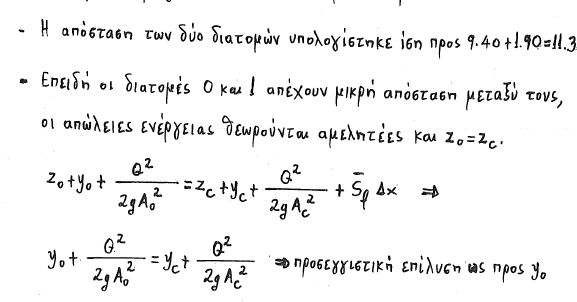 - Η απόσταση των δύο διατομών υπολογίστηκε ίση προς 9.40+1.90=11.3
- Επειδή οι διατομές 0 και 1 απέχουν μικρή απόσταση μεταξύ τους,
οι απώλειες ενέργειας θεωρούνται αμελητέες και z₀=z_c.
z₀+y₀+ Q²/2gA₀² = z_c+y_c+ Q²/2gA_c² + S̄_f Δx ⇒
y₀+ Q²/2gA₀² = y_c+ Q²/2gA_c² ⇒ προσεγγιστική επίλυση ως προς y₀